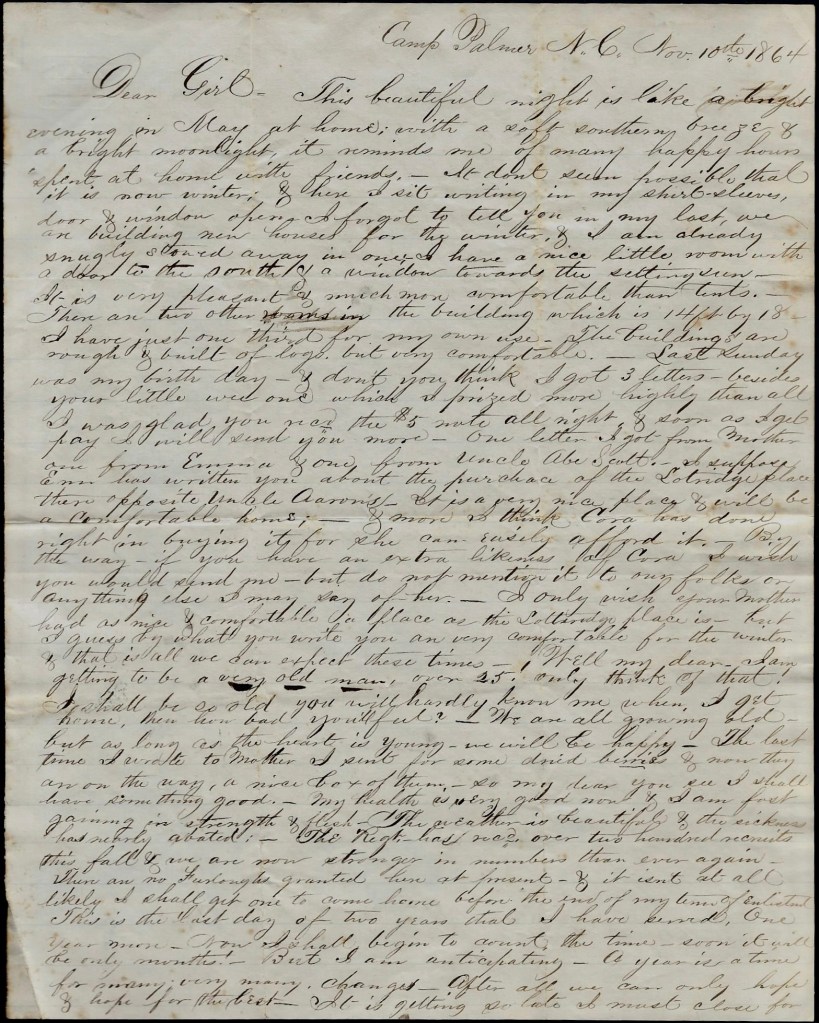 Camp Palmer N.C. Nov. 10th 1864
Dear Girl - This beautiful night is like a bright
evening in May at home; with a soft southern breeze &
a bright moonlight, it reminds me of many happy hours
spent at home with friends. - It dont seem possible that
it is now winter; & here I sit writing in my shirt-sleeves,
door & window open. I forgot to tell you in my last, we
are building new houses for the winter, & I am already
snugly stowed away in one; I have a nice little room with
a door to the south & a window towards the setting sun -
It is very pleasant & much more comfortable than tents. -
There are two other rooms in the building which is 14ft by 18 -
I have just one third for my own use - The buildings are
rough & built of logs but very comfortable. - Last Sunday
was my birth day - & dont you think I got 3 letters - besides
your little wee one which I prized more highly than all
I was glad you recd the $5 note all right, & soon as I get
pay I will send you more - One letter I got from Mother
one from Emma & one from Uncle Abe Scott. - I suppose
Em has written you about the purchace of the Lotridge place
there opposite Uncle Aaron's - It is a very nice place & will be
a comfortable home; - & more I think Cora has done
right in buying it, for she can easily afford it. - By
the way - if you have an extra likeness of Cora I wish
you would send me - but do not mention it to our folks or
anything else I may say of her. - I only wish your Mother
had as nice & comfortable a place as the Lotteridge place is - but
I guess by what you write you are very comfortable for the winter
& that is all we can expect these times - Well my dear - I am
getting to be a very old man, over 25. only think of that!
I shall be so old you will hardly know me when I get
home, then how bad you'll feel? - We are all growing old -
but as long as the heart is young - we will be happy - The last
time I wrote to Mother I sent for some dried berries & now they
are on the way, a nice box of them, - so my dear you see I shall
have something good. - My health is very good now & I am fast
gaining in strength & flesh - The weather is beautiful & the sickness
has nearly abated; - The Regt. has recd. over two hundred recruits
this fall & we are now stronger in number than ever again -
There are no Furloughs granted here at present - & it isnt at all
likely I shall get one to come home before the end of my term of Enlistment
This is the last day of two years that I have served, One
year more - Now I shall begin to count the time - soon it will
be only months! - But I am anticipating - A year is a time
for many, very many, changes - After all we can only hope
& hope for the best - It is getting so late I must close for